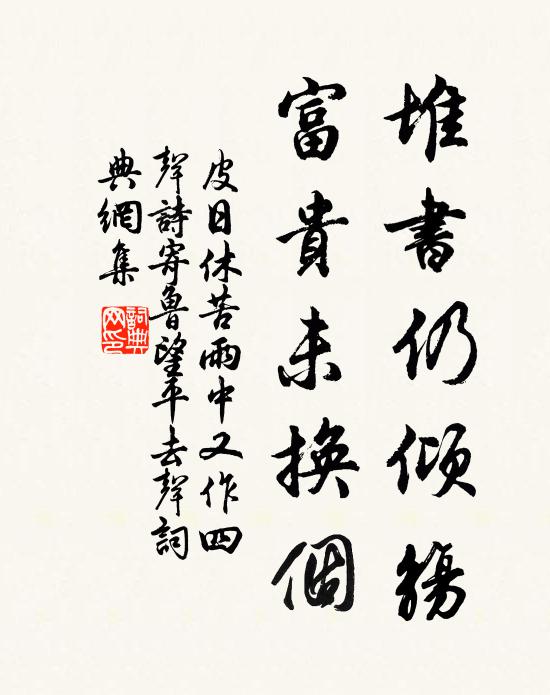 堆書仍傾觴
富貴未換個
皮日休苦雨中又作四
聲詩寄魯望平去聲詞
典網集
詞典
网印